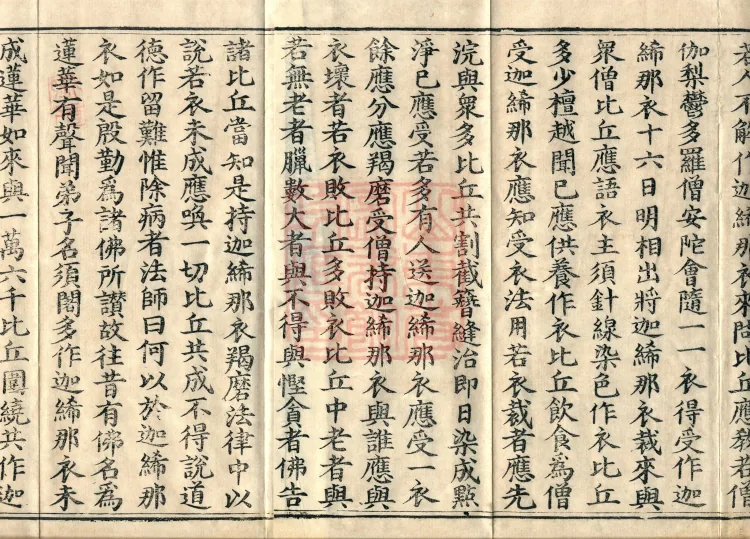 若人不解作迦絺那衣來問比丘應教若僧
伽梨鬱多羅僧安陀會隨一一衣得受作迦
絺那衣十六日明相出將迦絺那衣裁來與
眾僧比丘應語衣主須針線染色作衣比丘
多少檀越聞已應供養作衣比丘飲食爲僧
受迦絺那衣應知受衣法用若衣裁者應先
浣與眾多比丘共割截簪縫治即日染成點
淨已應受若多有人送迦絺那衣應受一衣
餘應分應羯磨受僧持迦絺那衣與誰應與
衣壞者若衣敗比丘多敗衣比丘中老者與
若無老者臘數大者與不得與慳貪者佛告
諸比丘當知是持迦絺那衣羯磨法律中以
說若衣未成應喚一切比丘共成不得說道
德作留難惟除病者法師曰何以於迦絺那
衣如是殷勤爲諸佛所讚故往昔有佛名爲
蓮華有聲聞弟子名須闍多作迦絺那衣未
成蓮華如來與一萬六千比丘圍繞共作迦